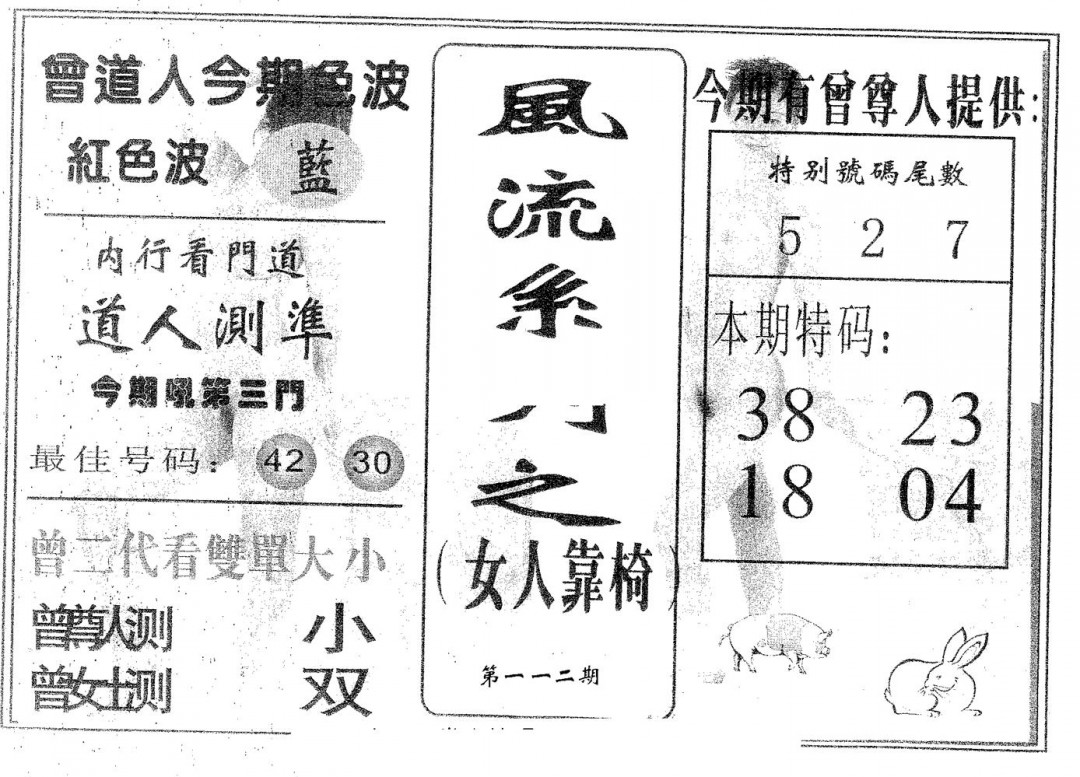 曾道人今期色波
紅色波 藍
内行看門道
道人測準
今期吼第三門
最佳号码：42 30
曾二代看雙單大小
曾尊人测 小
曾女士测 双
風流系
之
（女人靠椅）
第一一二期
今期有曾尊人提供：
特别號碼尾數
5 2 7
本期特码：
38 23
18 04